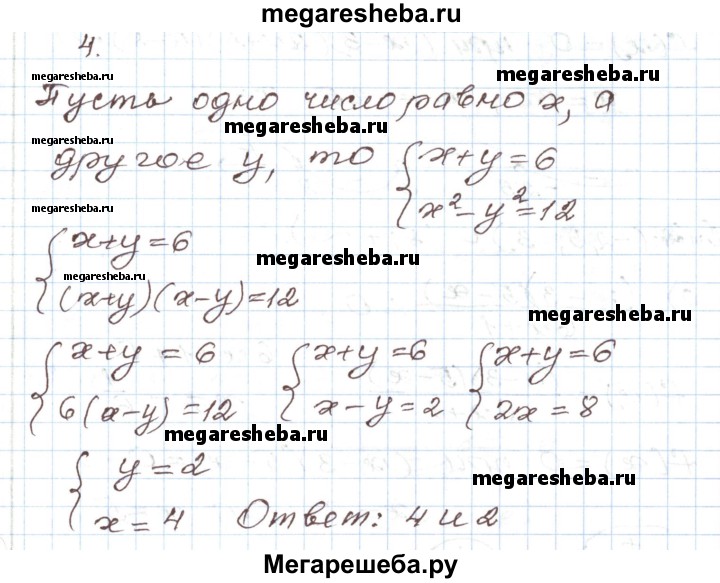 megaresheba.ru
4.
megaresheba.ru megaresheba.ru
Пусть одно число равно x, а
megaresheba.ru megaresheba.ru
другое y, то { x+y=6
x²-y²=12
megaresheba.ru
{ x+y=6
megaresheba.ru
megaresheba.ru
(x+y)(x-y)=12
megaresheba.ru
{ x+y=6 { x+y=6 { x+y=6
6(x-y)=12 x-y=2 2x=8
megaresheba.ru
{ y=2
megaresheba.ru
x=4 Ответ: 4 и 2
Мегарешеба.ру